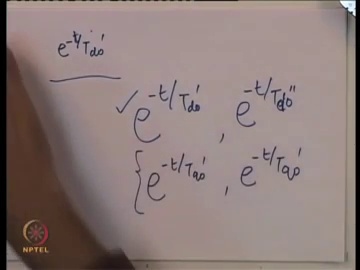 e^{-t/T_{do}'}
✓ e^{-t/T_{do}'} , e^{-t/T_{do}''}
{ e^{-t/T_{qo}'} , e^{-t/T_{qo}'}
NPTEL